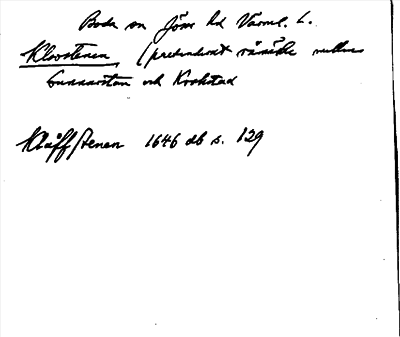 Boda sn Jösse hd Värml. L.
Kloostenen (predendent råmärke mellan
Gunnarstan och Krokstad
Klåffstenen 1646 db s. 129